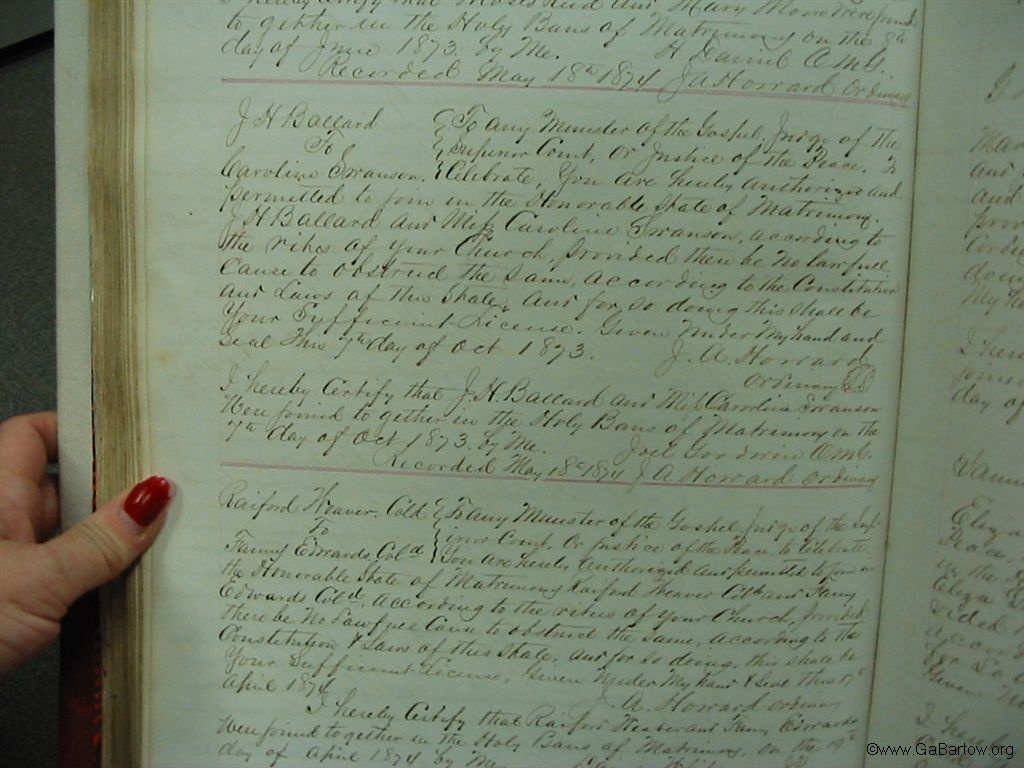 I hereby Certify that Moses Reid and Mary Moore were joined
to gether in the Holy Bans of Matrimony on the 8th
day of June 1873 by Me. H Daniel O.M.G.
Recorded May 18th 1874 J A Howard Ordinary
J H Ballard
To
Caroline Swanson.
To any Minister of the Gospel, Judge of the
Superior Court, Or Justice of the Peace, To
Celebrate, You are hereby authorized and
permitted to join in the Honorable State of Matrimony.
J H Ballard and Miss Caroline Swanson, according to
the rites of your Church, provided there be no lawfull
Cause to obstruct the Same, according to the Constitution
and Laws of this State, and for so doing this shall be
Your Sufficient License. Given Under My hand and
Seal This 7th day of Oct 1873. J. A. Howard
Ordinary
I hereby Certify that J H Ballard and Miss Carolina Swanson
Were joined to gether in the Holy Bans of Matrimony on the
7th day of Oct 1873. by Me. Joel Goodwin O.M.G.
Recorded May 18th 1874 J A Howard Ordinary
Raiford Weaver. Cold
To
Fanny Edwards Cold
To any Minister of the Gospel Judge of the Sup-
erior Court, Or Justice of the Peace, to Celebrate,
You are hereby Authorized and permitted to join in
the Honorable State of Matrimony Raiford Weaver Cold and Fany
Edwards Cold, according to the rites of your Church, provided
there be No Lawfull Cause to obstruct the Same, according to the
Constitution & Laws of this State, and for so doing, this shall be
Your Sufficient License, Given Under My hand & Seal This 17th
April 1874 J. A. Howard ordinary
I hereby Certify that Raiford Weaver and Fany Edwards
Were joined together in the Holy Bans of Matrimony, on the 19th
day of April 1874 by Me
©www.GaBartow.org